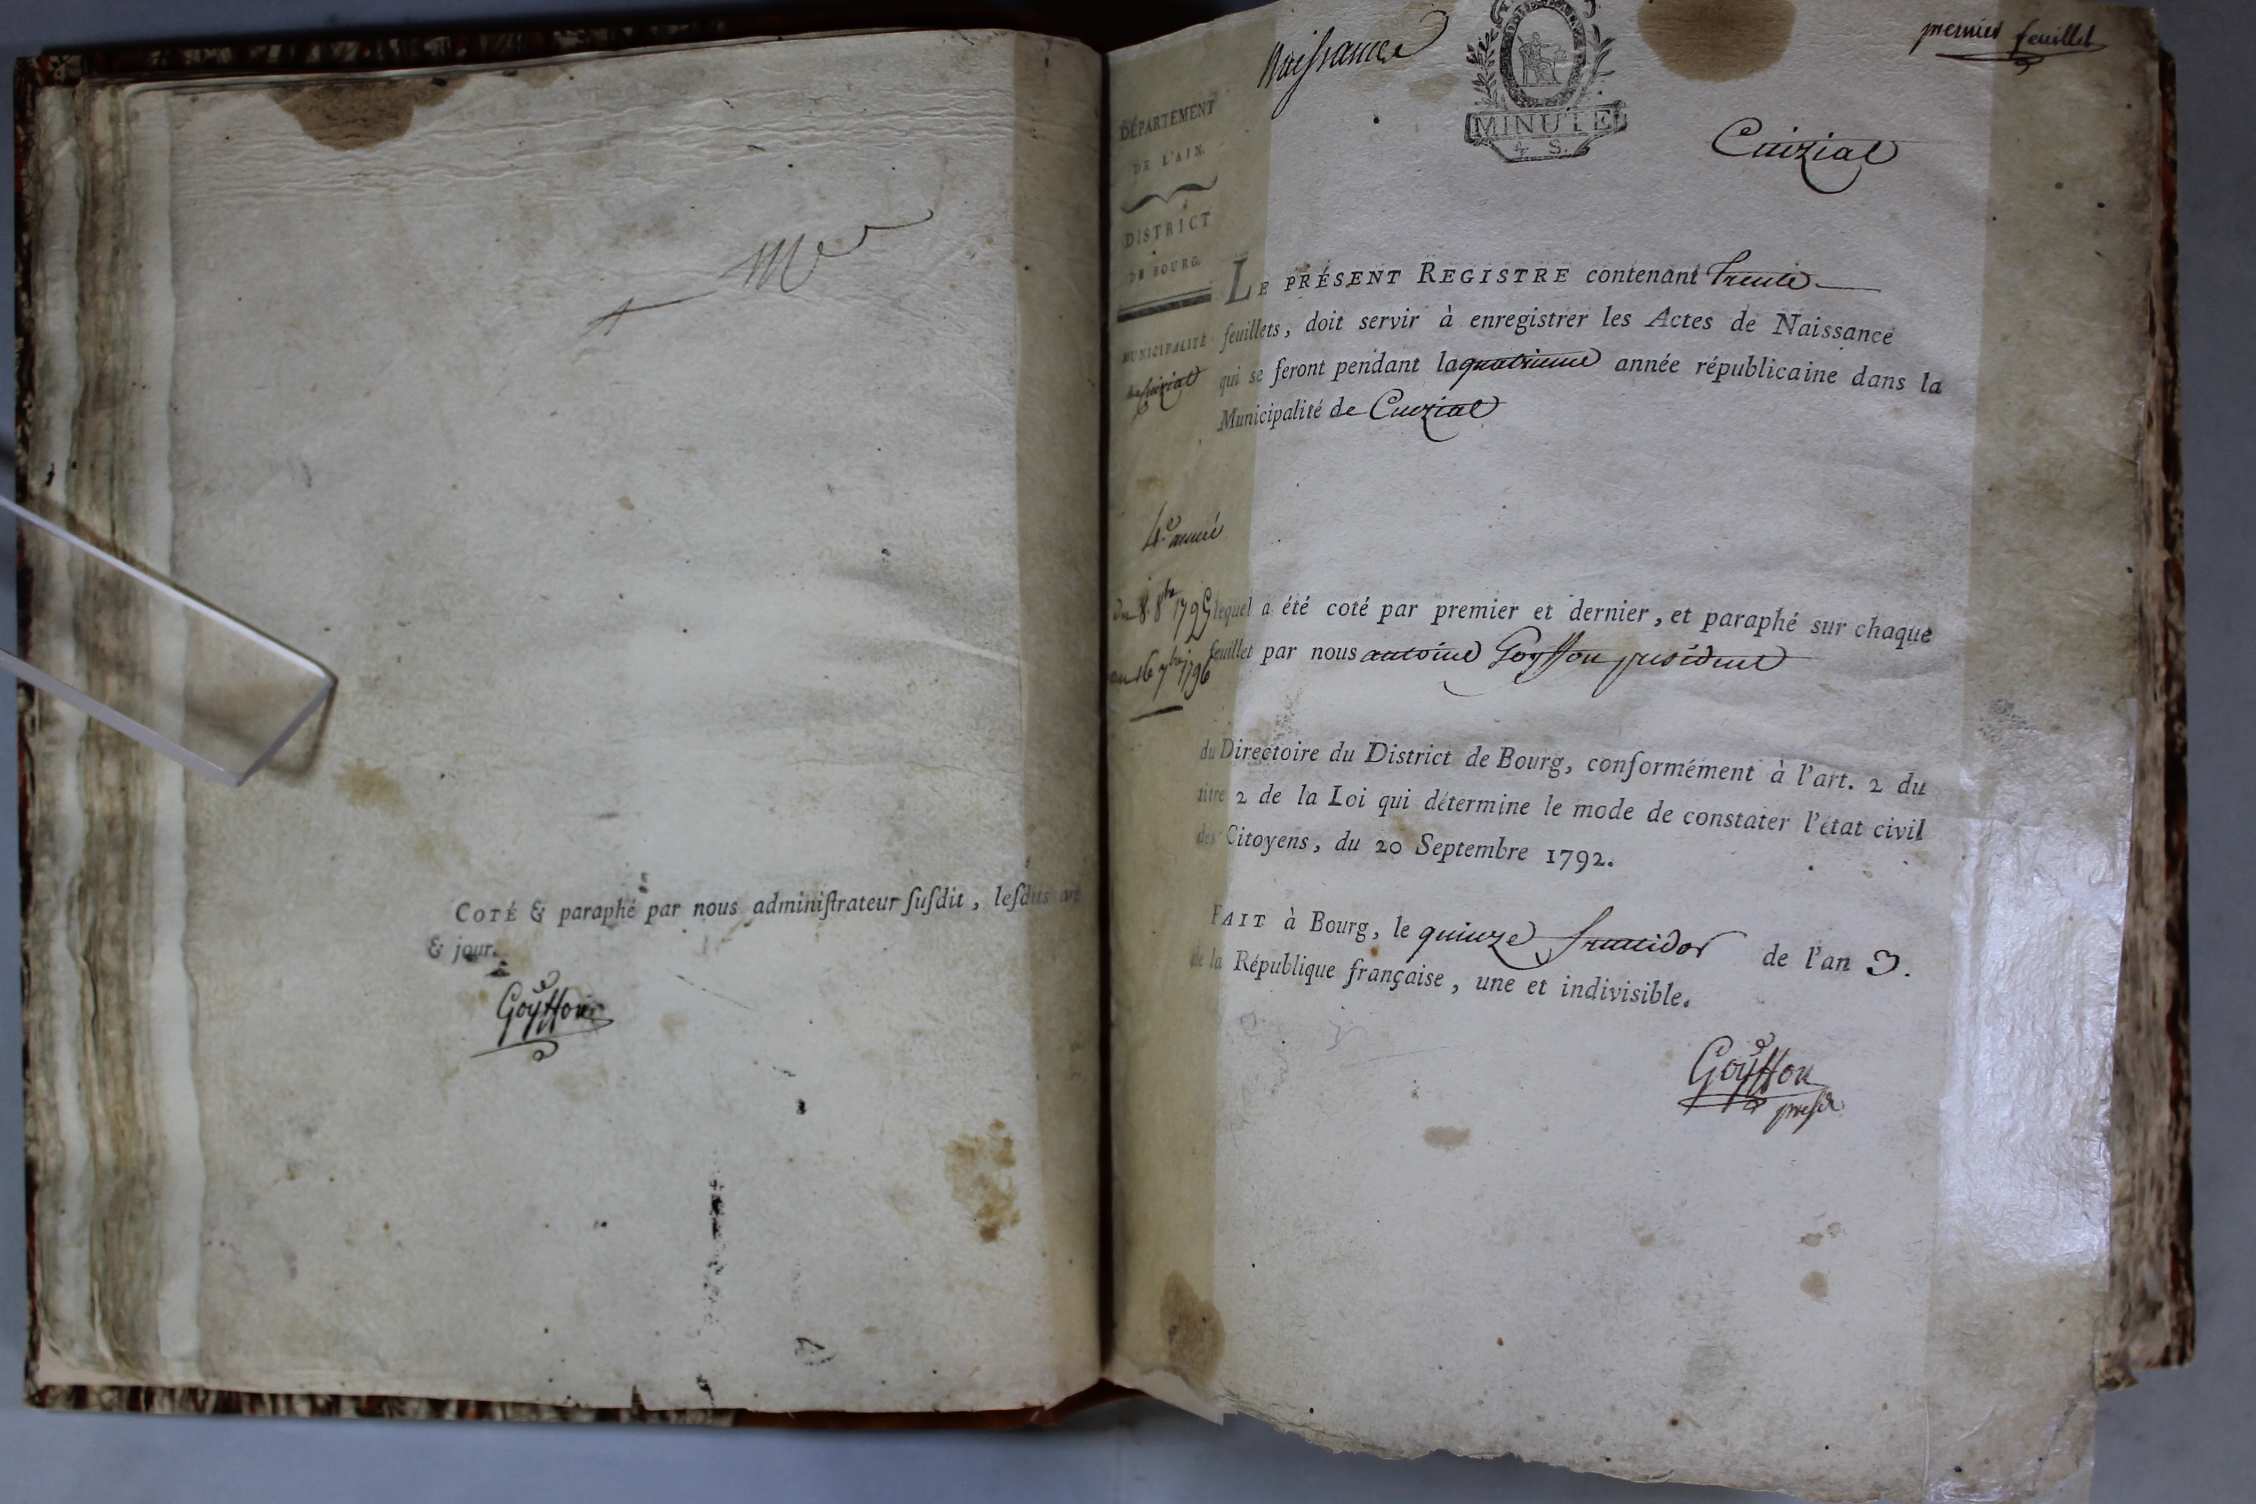 COTÉ & paraphé par nous administrateur susdit, lesdits an
& jour.
Goyffon
Naissance
premier feuillet
MINUTE
4 S.
Cuizial
DÉPARTEMENT
DE L'AIN.
DISTRICT
DE BOURG.
MUNICIPALITÉ
de Cuizial
LE PRÉSENT REGISTRE contenant trente
feuillets, doit servir à enregistrer les Actes de Naissance
qui se feront pendant la quatrieme année républicaine dans la
Municipalité de Cuizial
4.e année
du 8 8bre 1795
au 16 7bre 1796
lequel a été coté par premier et dernier, et paraphé sur chaque
feuillet par nous antoine Goyffon president
du Directoire du District de Bourg, conformément à l'art. 2 du
titre 2 de la Loi qui détermine le mode de constater l'état civil
des Citoyens, du 20 Septembre 1792.
FAIT à Bourg, le quinze fructidor de l'an 3.
de la République française, une et indivisible.
Goyffon
presid